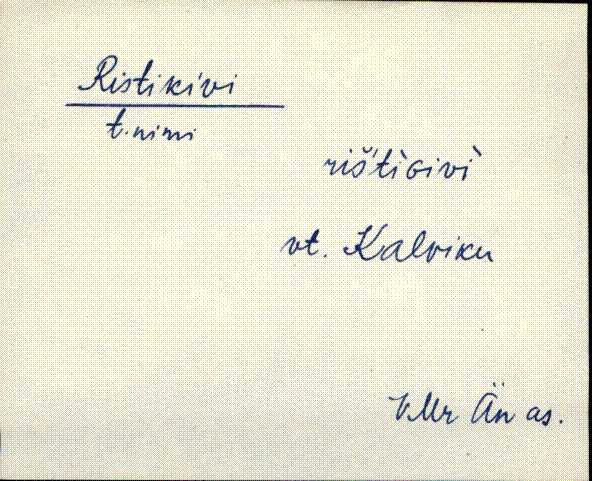 Ristikivi
t. nimi
rišt́ìGivì
vt. Kalviku
VMr Än as.